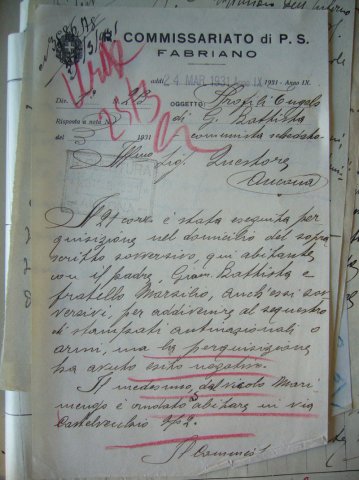 COMMISSARIATO di P. S.
FABRIANO
addì 24 MAR. 1931 Anno IX 1931 - Anno IX.
Div. OGGETTO: Profili Engelo
Risposta a nota di G. Battista
del 1931 comunista schedato
Urg
25/3
Ill/mo Sig. Questore
Ancona
Il 21 corr. è stata eseguita per
quisizione nel domicilio del sopra
scritto sovversivo, qui abitante
con il padre, Giov. Battista e
fratello Marsilio, anch'essi sov
versivi, per addivenire al sequestro
di stampati antinazionali o
armi, ma la perquisizione
ha avuto esito negativo.
Il medesimo, dal vicolo Mari
mengo è andato ad abitare in via
Castelvecchio N° 2.
Il Commiss.